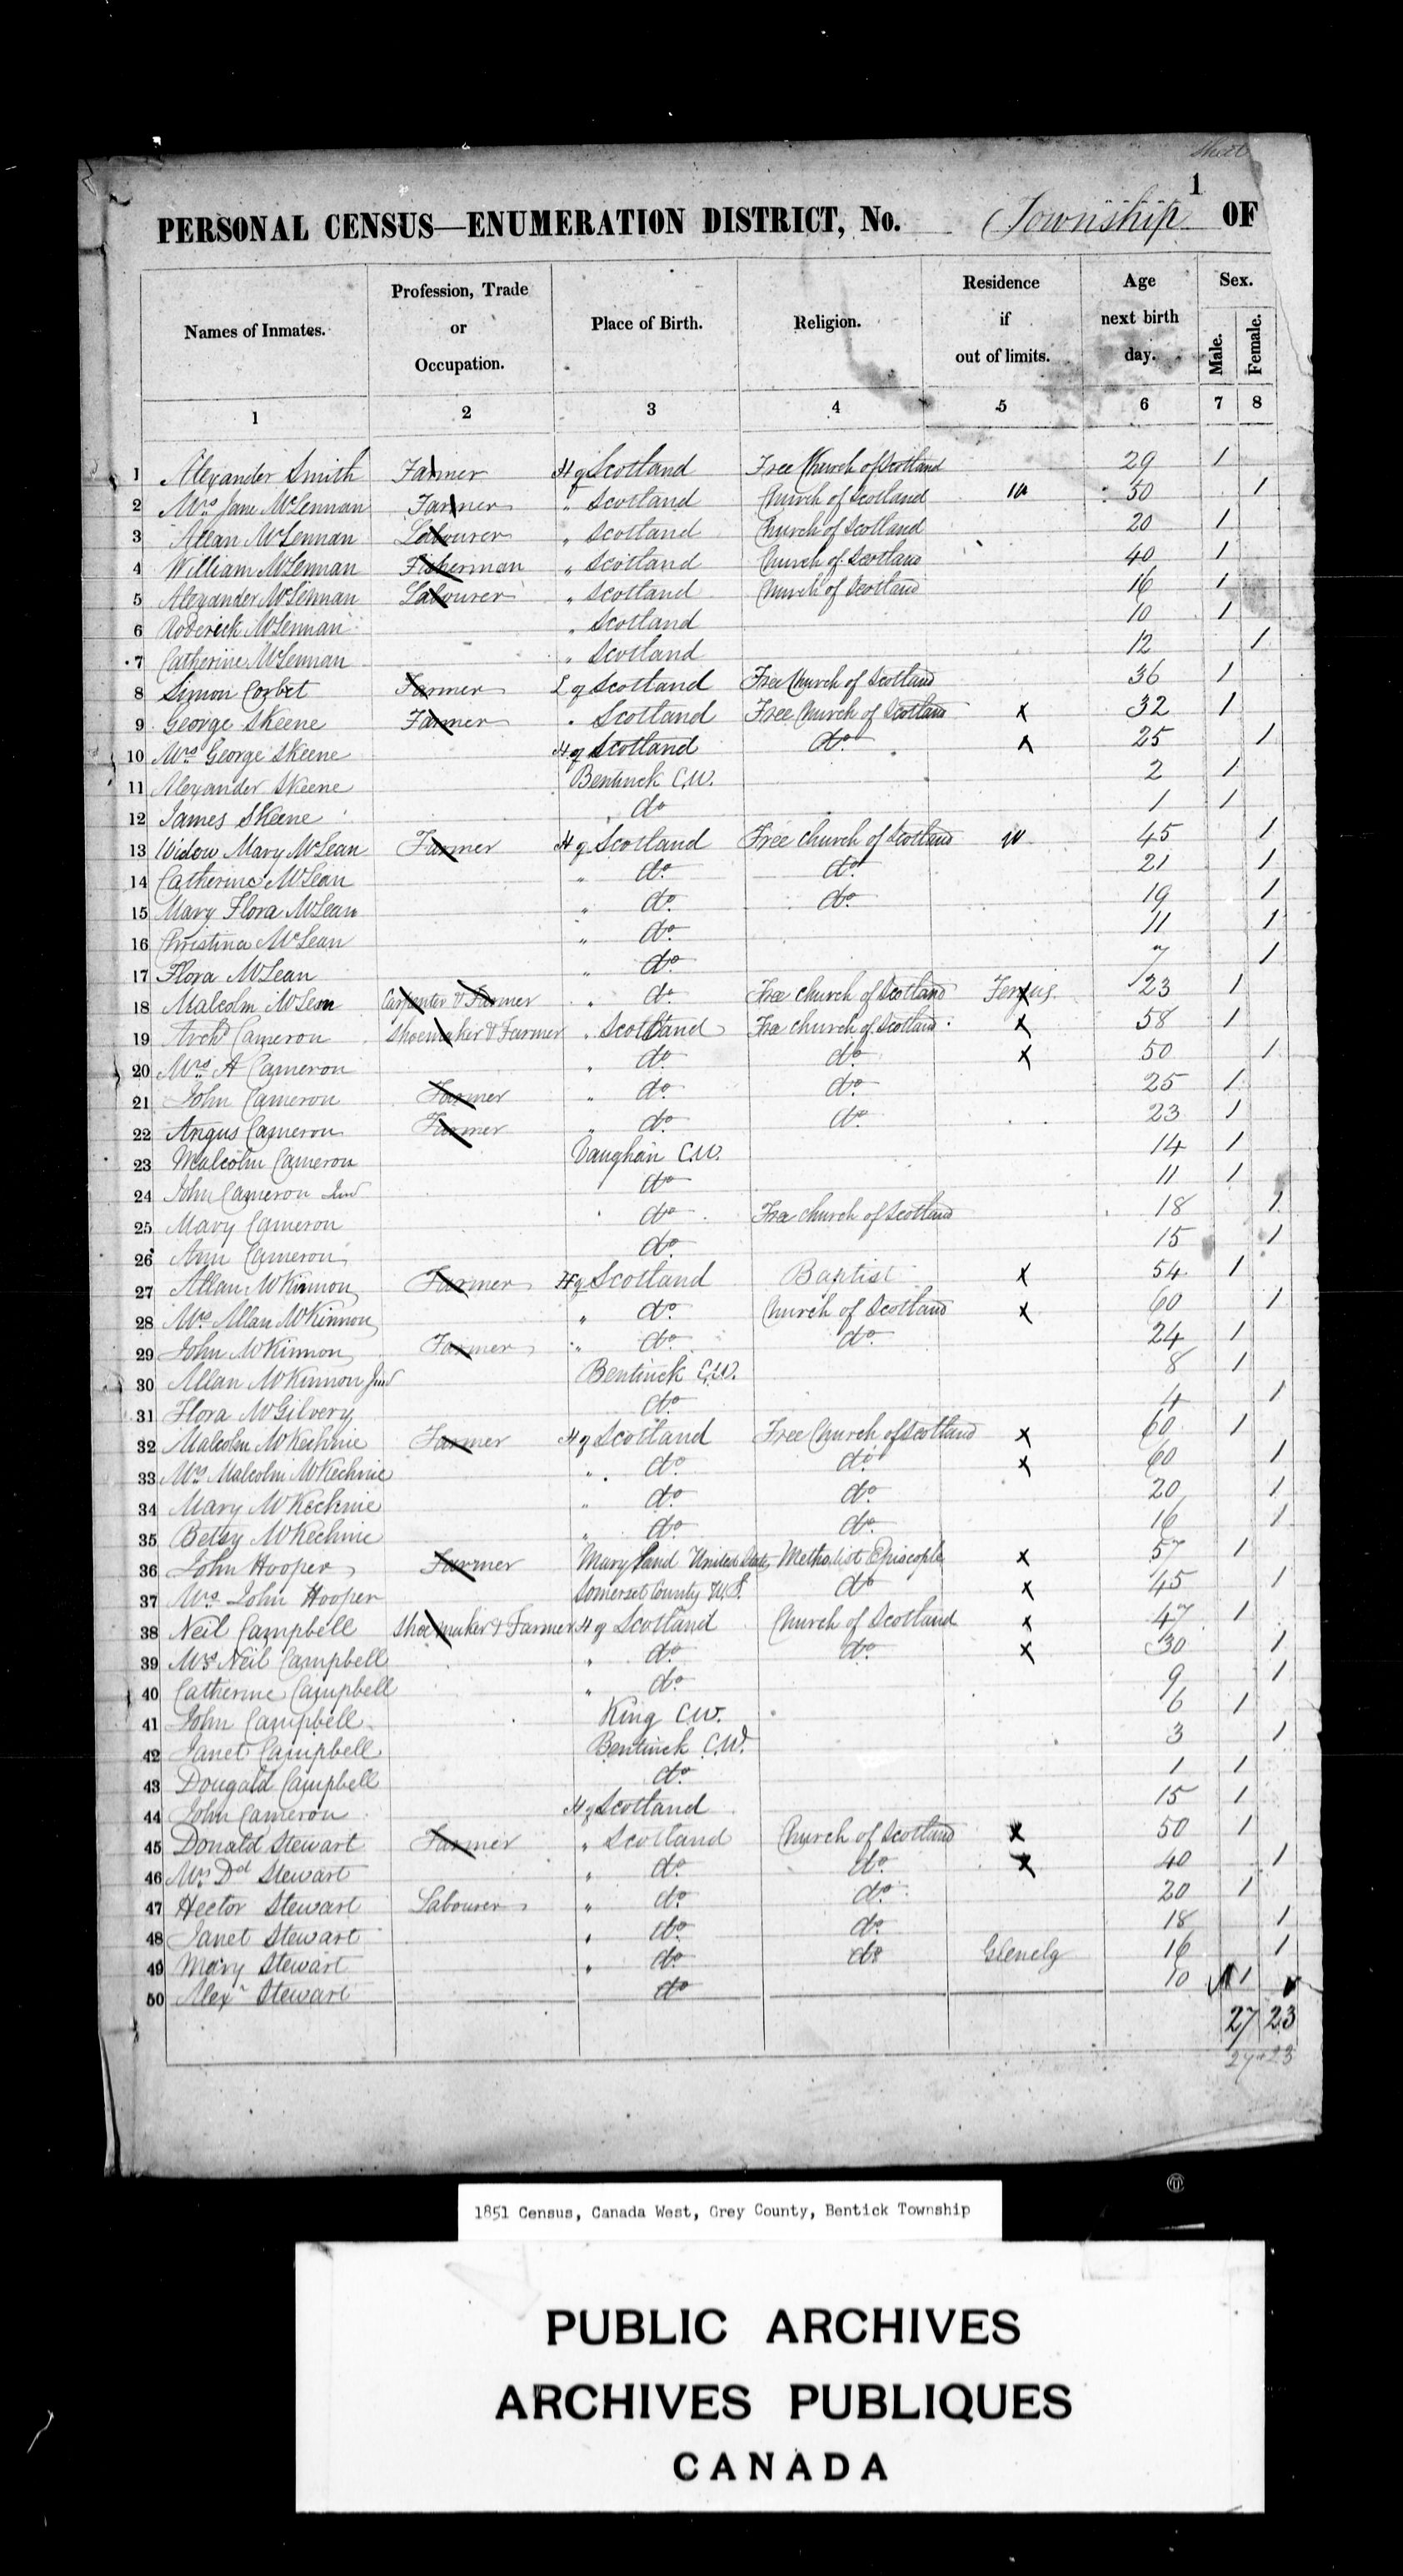 Sheet
1
PERSONAL CENSUS—ENUMERATION DISTRICT, No. Township OF
Names of Inmates. Profession, Trade or Occupation. Place of Birth. Religion. Residence if out of limits. Age next birth day. Sex. Male. Female.
1 2 3 4 5 6 7 8
1 Alexander Smith Farmer H of Scotland Free Church of Scotland 29 1
2 Mrs Jane McLennan Farmer " Scotland Church of Scotland 50 1
3 Allan McLennan Labourer " Scotland Church of Scotland 20 1
4 William McLennan Fisherman " Scotland Church of Scotland 40 1
5 Alexander McLennan Labourer " Scotland Church of Scotland 16 1
6 Roderick McLennan " Scotland 10 1
7 Catherine McLennan " Scotland 12 1
8 Simon Corbet Farmer L of Scotland Free Church of Scotland 36 1
9 George Skeene Farmer " Scotland Free Church of Scotland x 32 1
10 Mrs George Skeene H of Scotland do x 25 1
11 Alexander Skeene Bentinck C.W. 2 1
12 James Skeene do 1 1
13 Widow Mary McLean Farmer H of Scotland Free Church of Scotland w 45 1
14 Catherine McLean " do do 21 1
15 Mary Flora McLean " do do 19 1
16 Christina McLean " do 11 1
17 Flora McLean " do 7 1
18 Malcolm McLean Carpenter & Farmer " do Free Church of Scotland Fergus 23 1
19 Archd Cameron Shoemaker & Farmer " Scotland Free Church of Scotland x 58 1
20 Mrs A Cameron " do do x 50 1
21 John Cameron Farmer " do do 25 1
22 Angus Cameron Farmer " do do 23 1
23 Malcolm Cameron Vaughan C.W. 14 1
24 John Cameron Junr do 11 1
25 Mary Cameron do Free Church of Scotland 18 1
26 Ann Cameron do 15 1
27 Allan McKinnon Farmer H of Scotland Baptist x 54 1
28 Mrs Allan McKinnon " do Church of Scotland x 60 1
29 John McKinnon Farmer " do do 24 1
30 Allan McKinnon Junr Bentinck C.W. 8 1
31 Flora McGilvery do 4 1
32 Malcolm McKechnie Farmer H of Scotland Free Church of Scotland x 60 1
33 Mrs Malcolm McKechnie " do do x 60 1
34 Mary McKechnie " do do 20 1
35 Betsy McKechnie " do do 16 1
36 John Hooper Farmer Maryland United States Methodist Episcople x 57 1
37 Mrs John Hooper Somerset County U.S. do x 45 1
38 Neil Campbell Shoemaker & Farmer H of Scotland Church of Scotland x 47 1
39 Mrs Neil Campbell " do do x 30 1
40 Catherine Campbell " do 9 1
41 John Campbell King C.W. 6 1
42 Janet Campbell Bentinck C.W. 3 1
43 Dougald Campbell do 1 1
44 John Cameron H of Scotland 15 1
45 Donald Stewart Farmer " Scotland Church of Scotland x 50 1
46 Mrs Dd Stewart " do do x 40 1
47 Hector Stewart Labourer " do do 20 1
48 Janet Stewart " do do 18 1
49 Mary Stewart " do do Glenelg 16 1
50 Alexr Stewart do 10 1
27 23
27+23
1851 Census, Canada West, Grey County, Bentick Township
PUBLIC ARCHIVES
ARCHIVES PUBLIQUES
CANADA